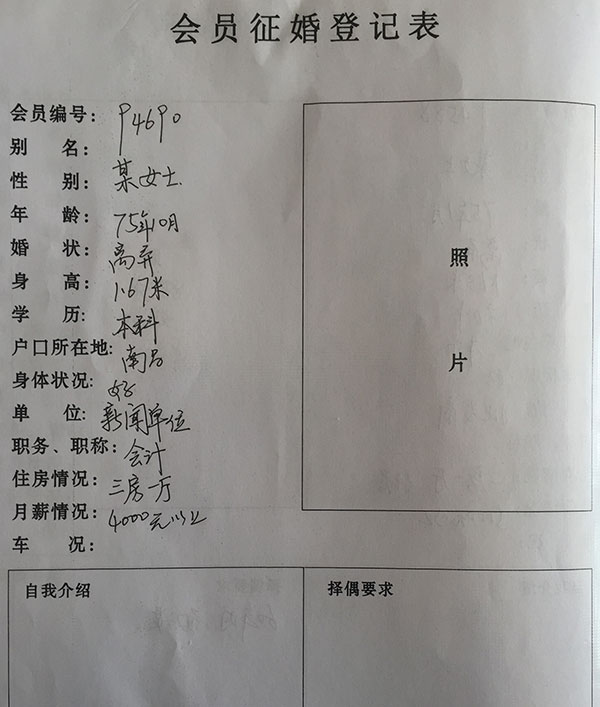 会员征婚登记表
会员编号：P4690
别 名：
性 别：某女士
年 龄：75年10月
婚 状：离弃
身 高：1.67米
学 历：本科
户口所在地：南昌
身体状况：好
单 位：新闻单位
职务、职称：会计
住房情况：三房一厅
月薪情况：4000元以上
车 况：
照
片
自我介绍
择偶要求